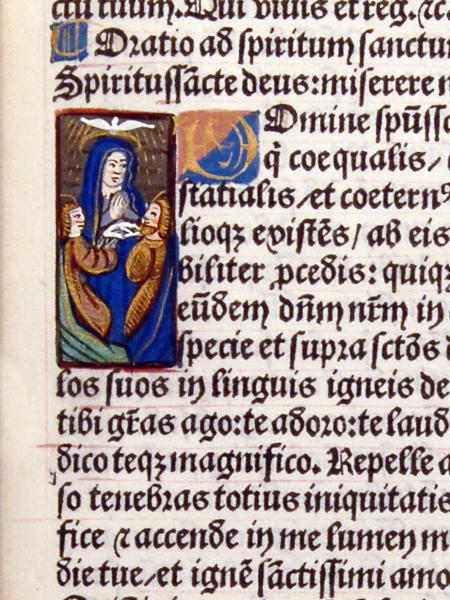 ctū tuum. Qui viuis et reg. ⁊c.
Oratio ad spiritum sanctu
Spiritussācte deus: miserere n
Omine spūssc
q̄ coequalis/
statialis/et coeternꝰ
lioqꝫ existēs/ ab eis
biliter ꝓcedis: quiqꝫ
eūdem dn̄m nr̄m in
specie et supra sctōs
los suos in linguis igneis de
tibi gr̄as ago: te adoro: te laud
dico teqꝫ magnifico. Repelle a
so tenebras totius iniquitatis
fice ⁊ accende in me lumen m
die tue/et ignē sāctissimi amo